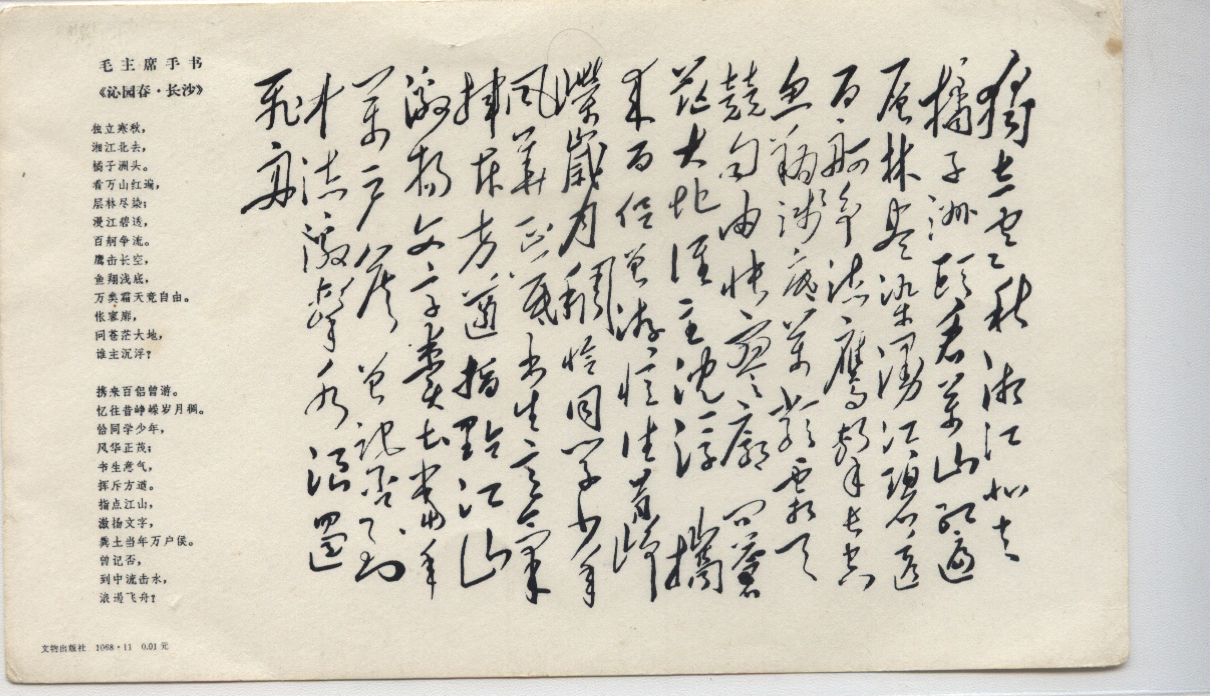 毛主席手书
《沁园春·长沙》
独立寒秋，
湘江北去，
橘子洲头。
看万山红遍，
层林尽染；
漫江碧透，
百舸争流。
鹰击长空，
鱼翔浅底，
万类霜天竞自由。
怅寥廓，
问苍茫大地，
谁主沉浮？
携来百侣曾游。
忆往昔峥嵘岁月稠。
恰同学少年，
风华正茂；
书生意气，
挥斥方遒。
指点江山，
激扬文字，
粪土当年万户侯。
曾记否，
到中流击水，
浪遏飞舟？
文物出版社 1068·11 0.01元
獨立寒秋湘江北去
橘子洲頭看萬山紅遍
層林盡染漫江碧透
百舸爭流鷹擊長空
魚翔淺底萬類霜天
競自由悵寥廓問蒼
茫大地誰主沉浮 攜
來百侶曾游憶往昔崢
嶸歲月稠恰同學少年
風華正茂書生意氣
揮斥方遒指點江山
激揚文字糞土當年
萬戶侯曾記否到
中流擊水浪遏
飛舟